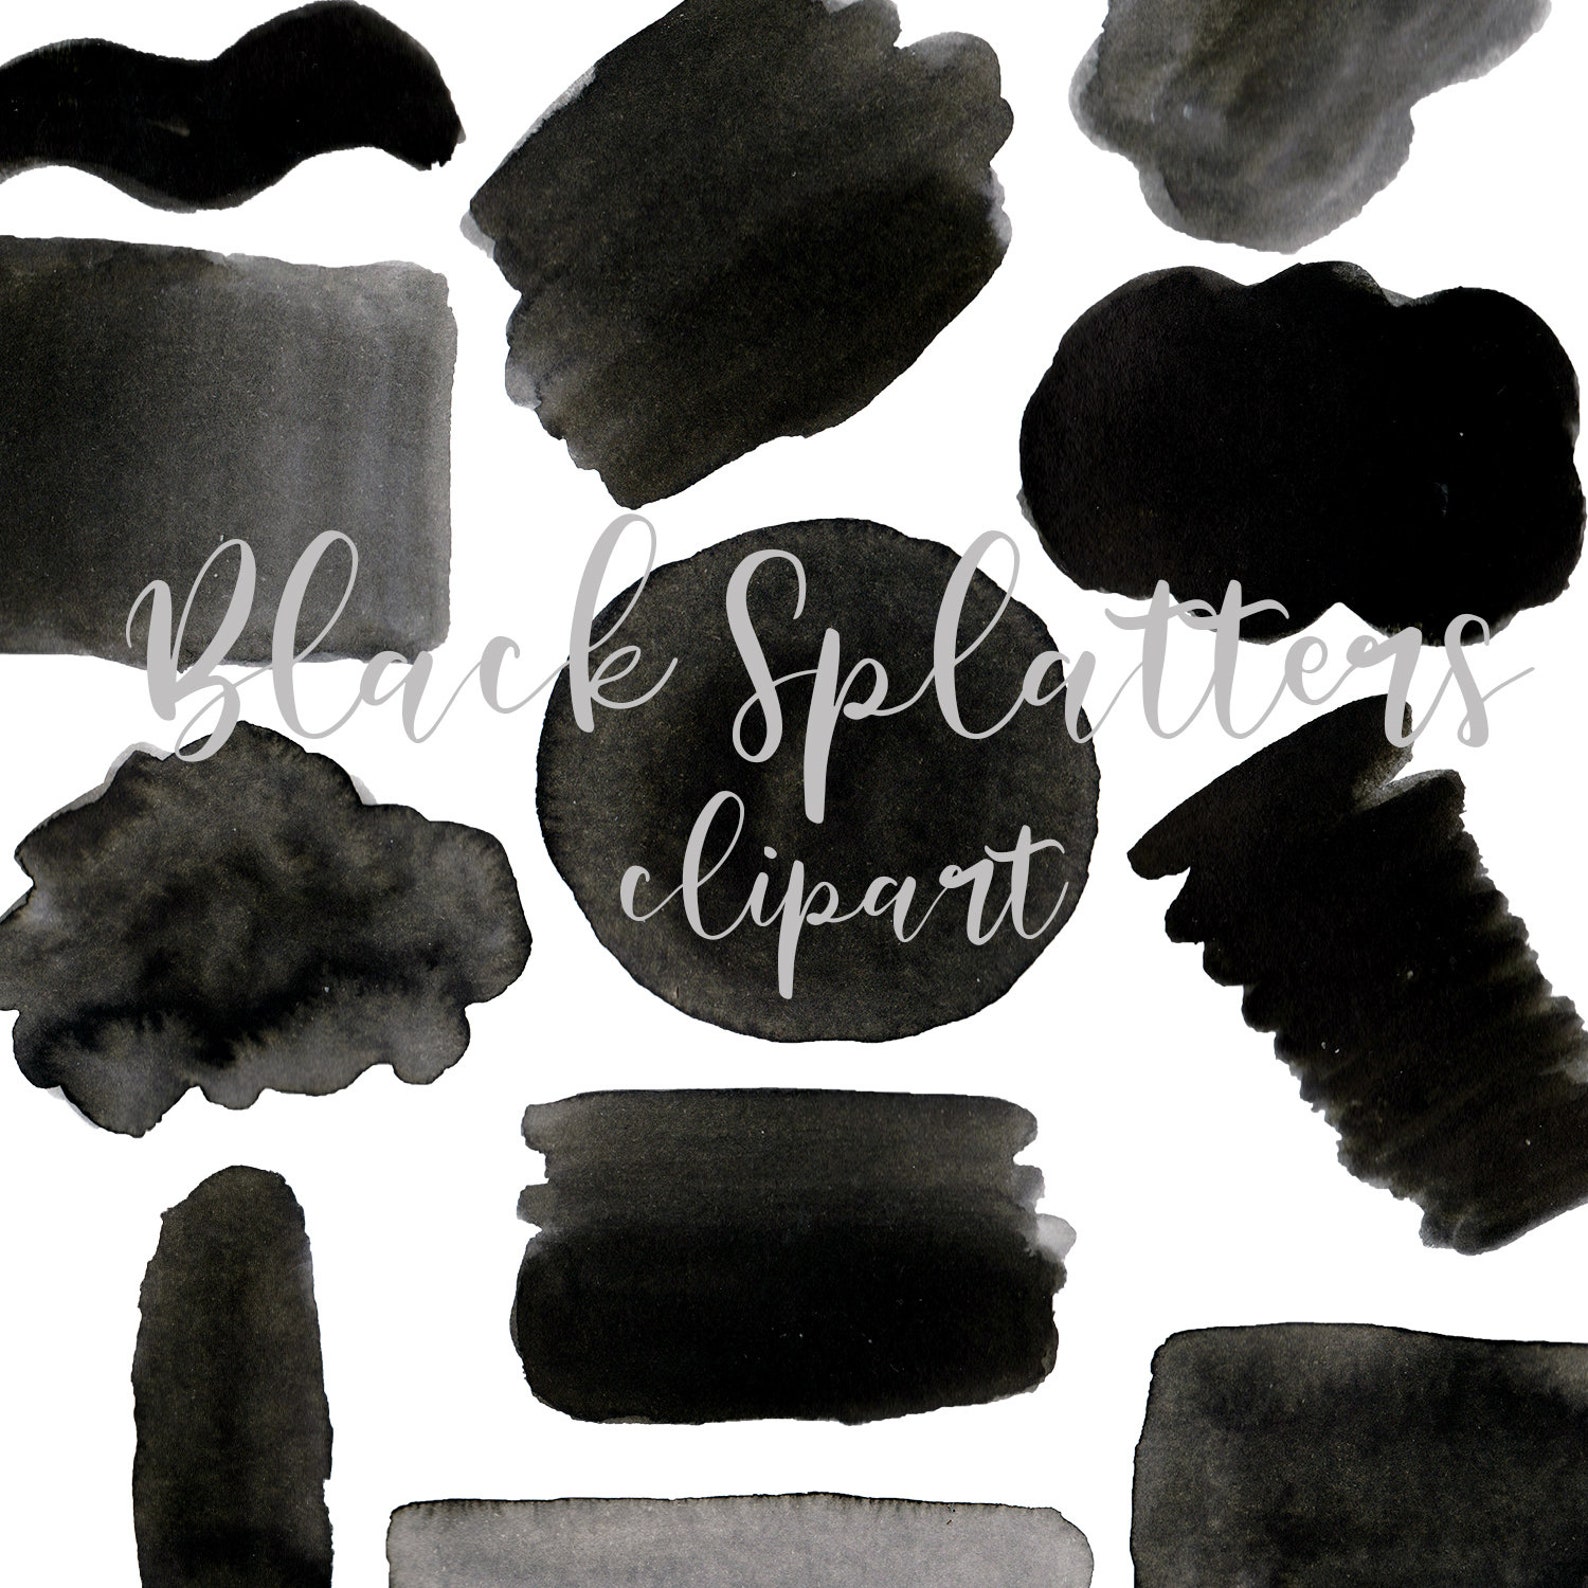 Black Splatters
clipart